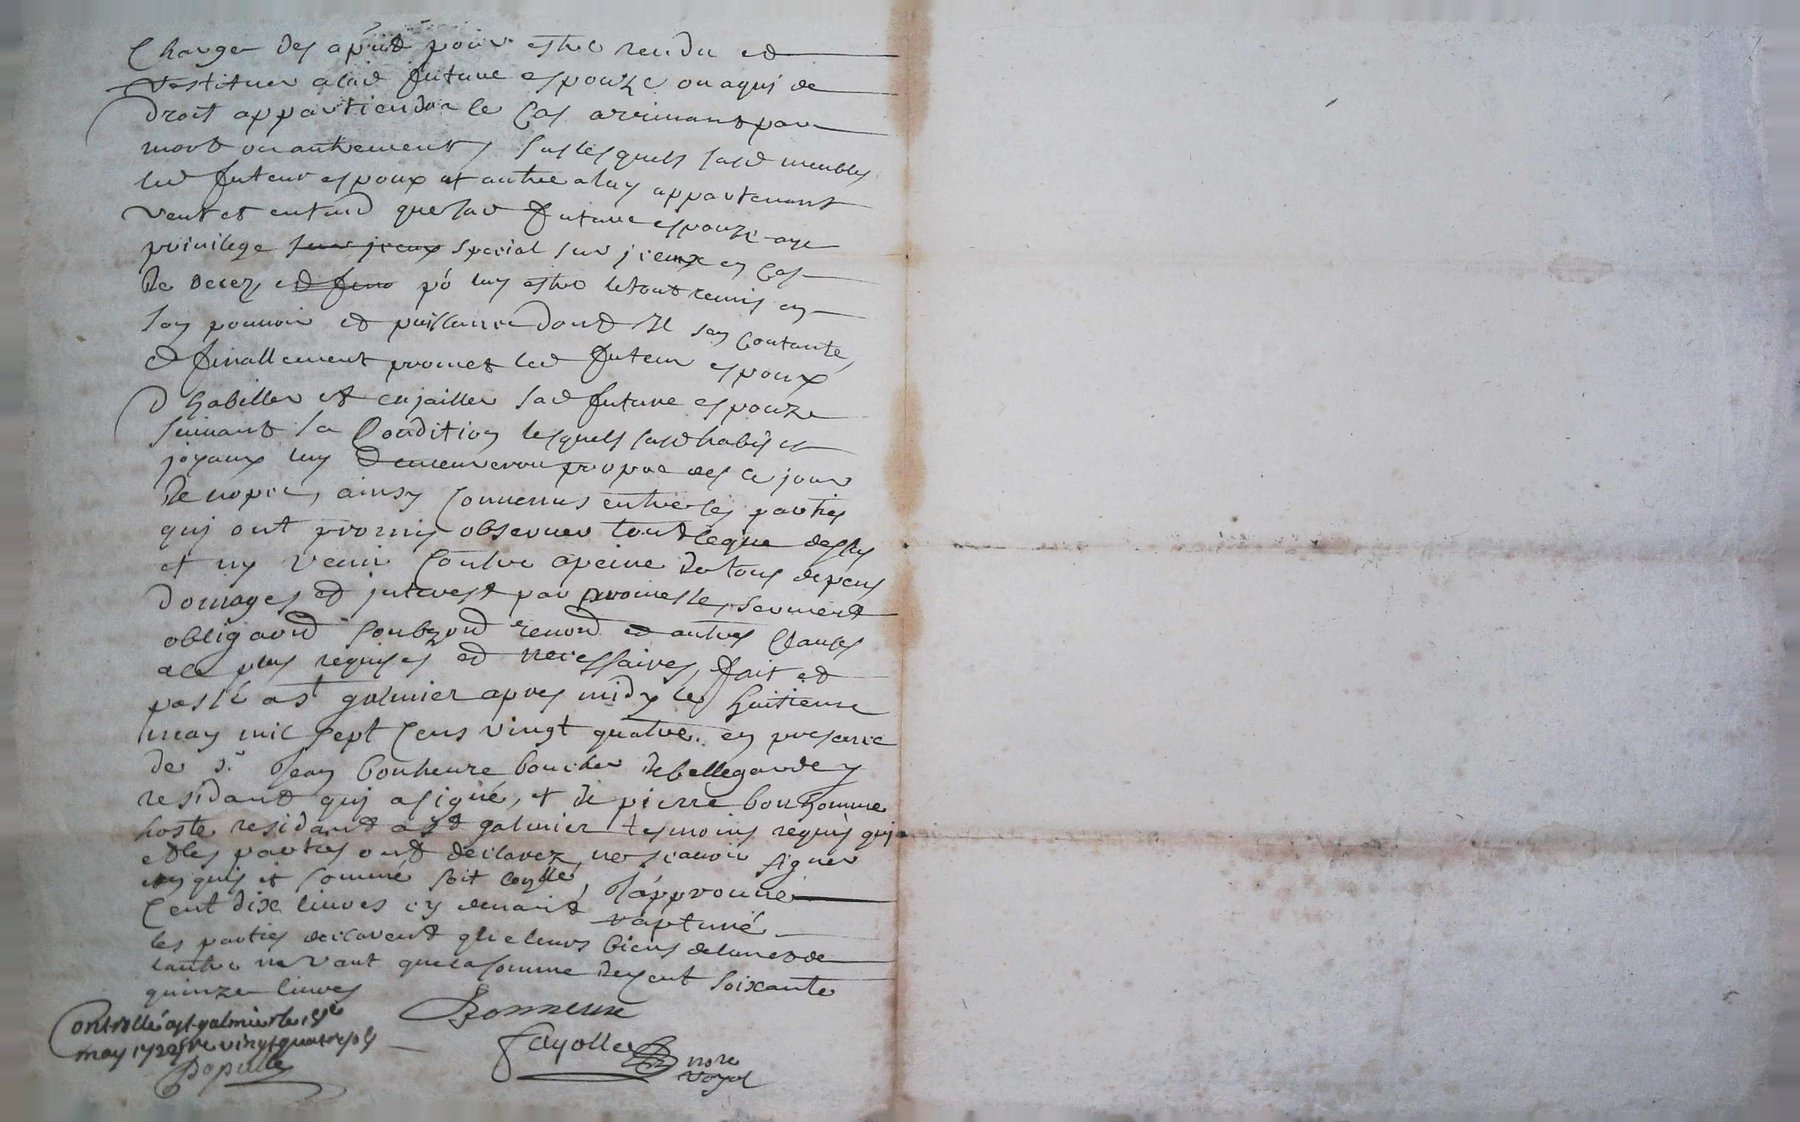 Charger des apñts pour estre rendu et
restituer alad future espouze ou aqui de
droit appartiendra le Cas arrivant par
mort ou autrement, sur lesquels susd meubles
led futeur espoux et autre a luy appartenant
veut et entand que lad future espouze aye
privilege sur jceux special sur jceux en Cas
de decez et pō luy estre le tout remis en
son pouvoir et puissance dont Il sen Contante,
et finallement promet led futeur espoux
d habiller et enjailler sad future espouze
suivant sa Condition lesquels susd habis et
joyaux luy demeureron propre des ce jour
de nopce, ainsy convenus entre les parties
qui ont promis observer tout ce que dessus
et ny venir Contre a peine de tous depens
domages et jnterest par promesse, serment
obligaond soubzond renond et autres Clauses
a ce plus requises et necessaires, fait et
passé a st galmier apres midy le huitieme
may mil sept Cens vingt quatre. en presence
de sr. Jean bonheure boucher de bellegarde y
residant qui a signé, et de pierre bonhomme
hoste residant a st galmier tesmoins requis qui
et les parties ont declarez ne scavoir signer
enquis et sommé soit conllé, J'approuve
Cent dix livres cy devant rapturé
les parties declarent que leurs biens de lune et de
lautre ne vaut que la somme de cent soixante
quinze livres
Bonneure
Controllé a st galmier le 15e
may 1724 vingt quatre sols
Fayolle
nore
royal
Populle